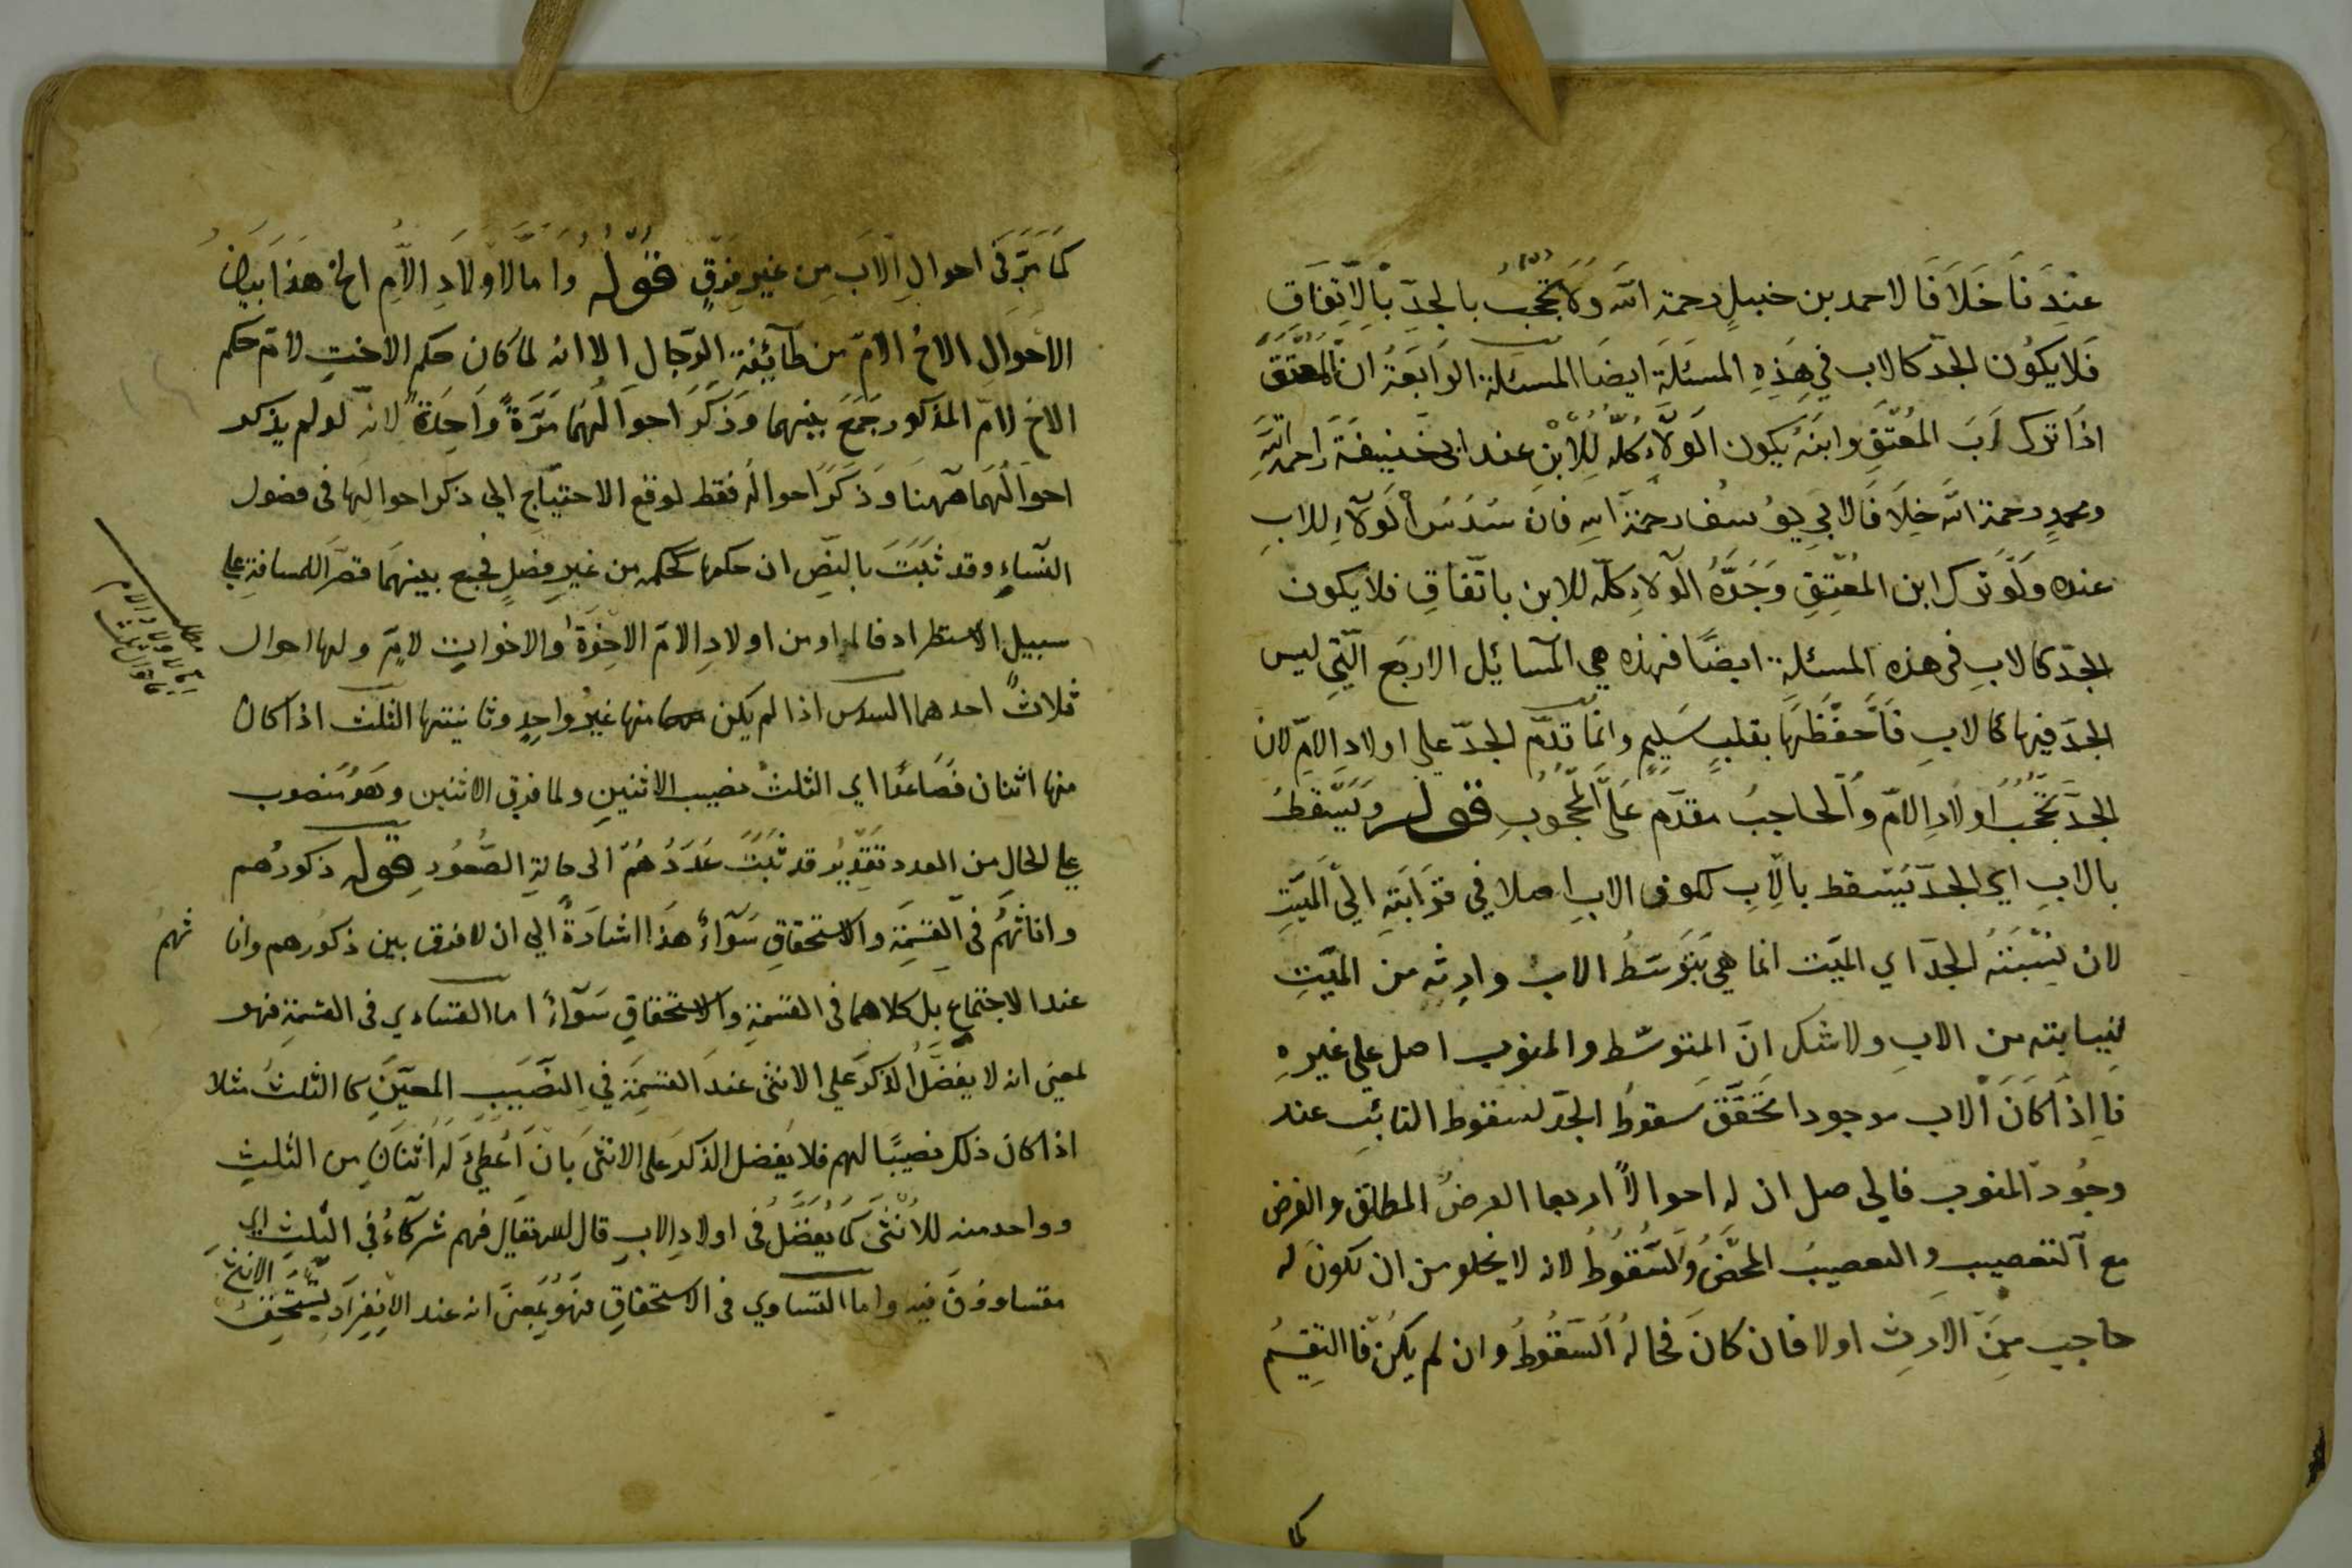 عندنا خلافا لاحمد بن حنبل رحمة الله ولا تحجب بالجد بالاتفاق
فلا يكون الجد كالاب في هذه المسئلة ايضا المسئلة الرابعة ان المعتق
اذا ترك اب المعتق وابنه يكون الولاء كله للابن عند ابي حنيفة رحمة الله
ومحمد رحمة الله خلافا لابي يوسف رحمة الله فان سدس الولاء للاب
عنده ولو ترك ابن المعتق وجده الولاء كله للابن باتفاق فلا يكون
الجد كالاب في هذه المسئلة ايضا فهذه هي المسائل الاربع التي ليس
الجد فيها كالاب فاحفظها بقلب سليم وانما قدم الجد على اولاد الام لان
الجد تحجب اولاد الام والحاجب مقدم على المحجوب قوله ويسقط
بالاب اي الجد يسقط بالاب لكون الاب اصلا في قرابته الى الميت
لان نسبته الجد اي الميت انما هي بتوسط الاب وارثه من الميت
لنيابته من الاب ولا شك ان المتوسط والمنوب اصل على غيره
فاذا كان الاب موجودا تحقق سقوط الجد لسقوط النائب عند
وجود المنوب فالحاصل ان له احوالا اربعا الفرض المطلق والفرض
مع التعصيب والتعصيب المحض والسقوط لانه لا يخلو من ان يكون له
حاجب من الارث اولا فان كان فحاله السقوط وان لم يكن فالتقسيم
كما
كما مر في احوال الاب من غير فرق قوله واما لاولاد الام الخ هذا بيان
الاحوال الاخ لام من طائفة الرجال الا انه لما كان حكم الاخت لام حكم
الاخ لام المذكور جمع بينهما وذكر احوالهما مرة واحدة لانه لو لم يذكر
احوالهما ههنا وذكر احواله فقط لوقع الاحتياج الى ذكر احوالها في فصول
النساء وقد ثبت بالنص ان حكمها كحكمه من غير فصل فجمع بينهما قصرا للمسافة على
سبيل الاستطراد فالمراد من اولاد الام الاخوة والاخوات لام ولها احوال
ثلاث احدهما السدس اذا لم يكن منها غير واحد وثانيتها الثلث اذا كان
منها اثنان فصاعدا اي الثلث نصيب الاثنين ولما فوق الاثنين وهو منصوب
على الحال من العدد تقديره قد ثبت عددهم الى حالة الصعود قوله ذكورهم
واناثهم في القسمة والاستحقاق سواء هذا اشارة الي ان لا فرق بين ذكورهم وانا
ثهم
عند الاجتماع بل كلاهما في القسمة والاستحقاق سواء اما التساوي في القسمة فهو
لمعنى انه لا يفضل الذكر على الانثى عند القسمة في النصيب المعين كما الثلث مثلا
اذا كان ذلك نصيبا لهم فلا يفضل الذكر على الانثى بان اعطى له اثنان من الثلث
وواحد منه للانثى كما يفضل في اولاد الاب قال الله تعالى فهم شركاء في الثلث اي
متساوون فيه واما التساوي في الاستحقاق فهو بمعنى انه عند الانفراد يستحق
الانثى